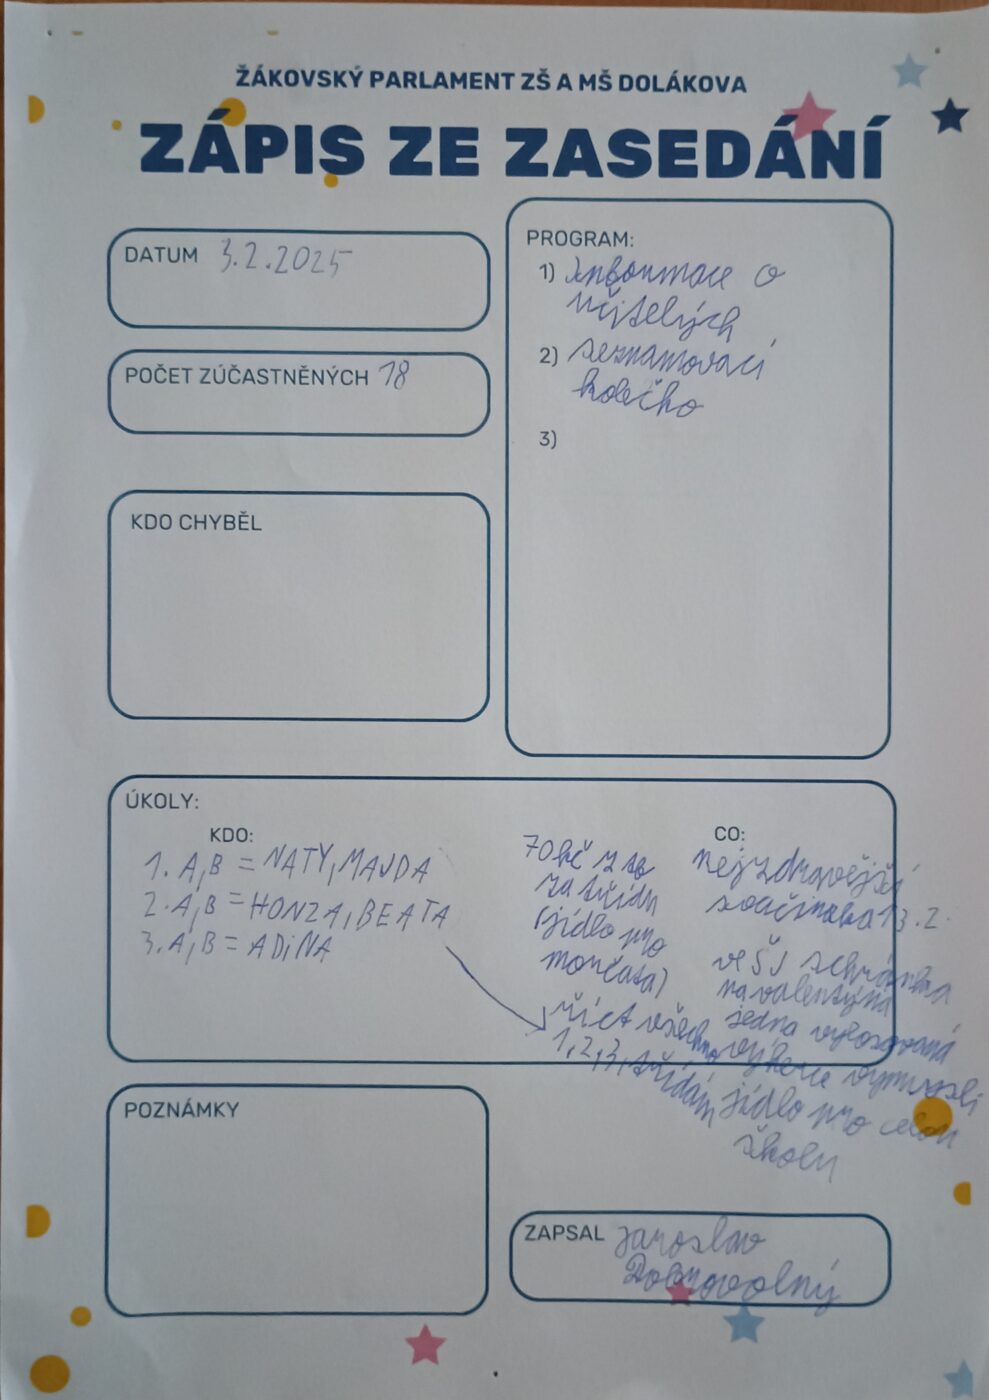 ŽÁKOVSKÝ PARLAMENT ZŠ A MŠ DOLÁKOVA
ZÁPIS ZE ZASEDÁNÍ
DATUM 3.2.2025
POČET ZÚČASTNĚNÝCH 18
KDO CHYBĚL
PROGRAM:
1) informace o
učitelých
2) seznamovací
kolečko
3)
ÚKOLY:
KDO:
1. A,B = NATY, MAJDA
2. A,B = HONZA, BEATA
3. A,B = ADINA
70 kč
za třídu
(jídlo pro
morčata)
říct všechno
1,2,3, třídám
CO:
nejzdravější
svačinka 13.2.
ve ŠJ schránka
na valentýna
jedna vylosovaná
výherce vymyslí
jídlo pro celou
školu
POZNÁMKY
ZAPSAL Jaroslav
Dobrovolný